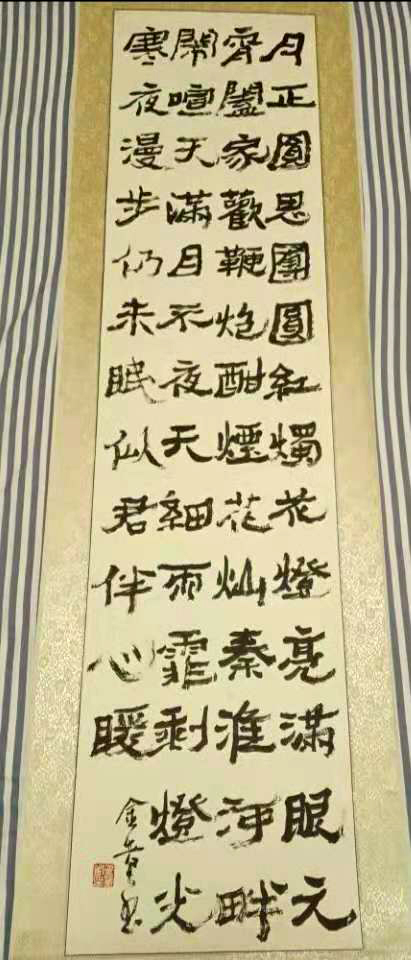 月正圓思團圓紅燭花燈亮滿眼元
宵闔家歡鞭炮酣煙花灿秦淮河畔
鬧喧天滿月不夜天細雨霏剩燈光
寒夜漫步仍未眠似君伴心暖
金书